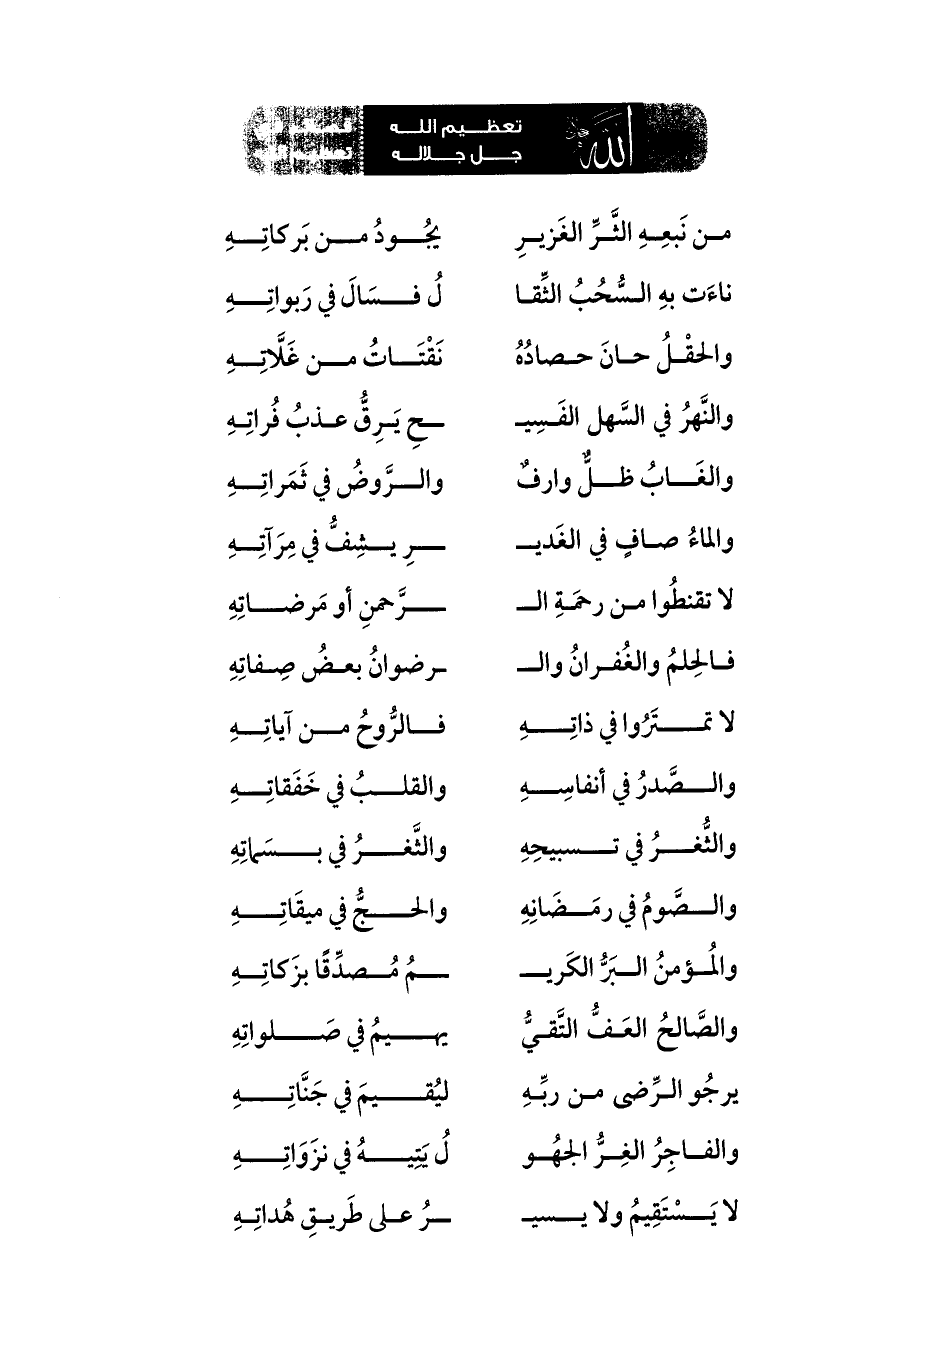 تعظيم الله
جل جلاله
من نَبعِهِ الثَّرِّ الغَزيرِ يجُودُ من بَركاتِهِ
ناءَت بهِ السُّحُبُ الثِّقا لُ فسَالَ في رَبواتِهِ
والحقْلُ حانَ حصادُهُ نَقْتَاتُ من غَلَّاتِهِ
والنَّهرُ في السَّهل الفَسِيـ ـحِ يَرِقُّ عذبُ فُراتِهِ
والغَابُ ظلٌّ وارفٌ والرَّوضُ في ثَمَراتِهِ
والماءُ صافٍ في الغَديـ ـرِ يشِفُّ في مِرَآتِهِ
لا تقنطُوا من رحمَةِ الـ ـرَّحمنِ أو مَرضاتِهِ
فالحِلمُ والغُفرانُ والـ ـرضوانُ بعضُ صِفاتِهِ
لا تمتَرُوا في ذاتِهِ فالرُّوحُ من آياتِهِ
والصَّدرُ في أنفاسِهِ والقلبُ في خَفَقاتِهِ
والثُّغرُ في تسبيحِهِ والثَّغرُ في بسَماتِهِ
والصَّومُ في رمَضَانِهِ والحجُّ في ميقَاتِهِ
والمُؤمنُ البَرُّ الكَريـ ـمُ مُصدِّقًا بزَكاتِهِ
والصَّالحُ العَفُّ التَّقيُّ يهيمُ في صَلواتِهِ
يرجُو الرِّضى من ربِّهِ ليُقيمَ في جَنَّاتِهِ
والفاجِرُ الغِرُّ الجهُو لُ يَتِيهُ في نزَوَاتِهِ
لا يَسْتَقِيمُ ولا يسيـ ـرُ على طَريقِ هُداتِهِ